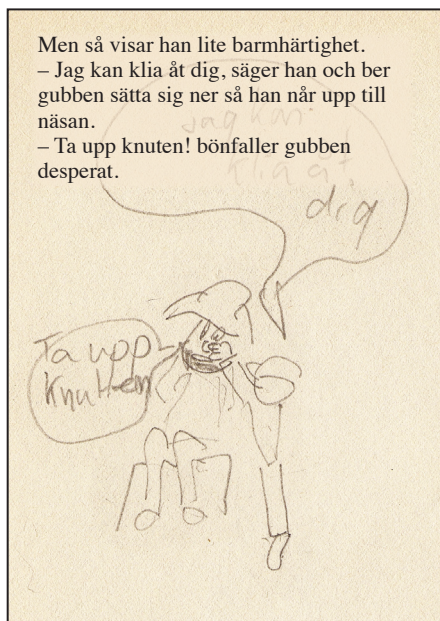 Men så visar han lite barmhärtighet.
– Jag kan klia åt dig, säger han och ber
gubben sätta sig ner så han når upp till
näsan.
– Ta upp knuten! bönfaller gubben
desperat.
jag kan
klia åt
dig
Ta upp
Knuten